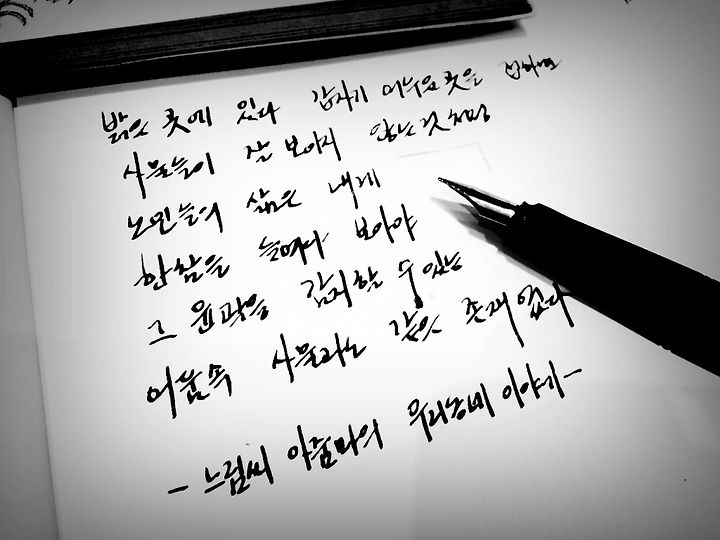 밝은 곳에 있다 갑자기 어두운 곳을 접하면
사물들이 잘 보이지 않는 것처럼
노인들의 삶은 내게
한참을 들여다 보아야
그 윤곽을 감지할 수 있는
어둠속 사물과도 같은 존재였다
- 느림씨 아줌마의 우리동네 이야기-